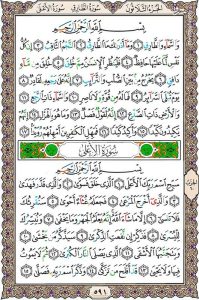 الجزء الثلاثون سورة الطارق سورة الأعلى
بِسْمِ اللَّهِ الرَّحْمَٰنِ الرَّحِيمِ
وَالسَّمَاءِ وَالطَّارِقِ ١ وَمَا أَدْرَاكَ مَا الطَّارِقُ ٢ النَّجْمُ الثَّاقِبُ ٣
إِن كُلُّ نَفْسٍ لَّمَّا عَلَيْهَا حَافِظٌ ٤ فَلْيَنظُرِ الْإِنسَانُ مِمَّ خُلِقَ ٥ خُلِقَ
مِن مَّاءٍ دَافِقٍ ٦ يَخْرُجُ مِن بَيْنِ الصُّلْبِ وَالتَّرَائِبِ ٧ إِنَّهُ عَلَىٰ رَجْعِهِ لَقَادِرٌ ٨
يَوْمَ تُبْلَى السَّرَائِرُ ٩ فَمَا لَهُ مِن قُوَّةٍ وَلَا نَاصِرٍ ١٠ وَالسَّمَاءِ ذَاتِ الرَّجْعِ ١١
وَالْأَرْضِ ذَاتِ الصَّدْعِ ١٢ إِنَّهُ لَقَوْلٌ فَصْلٌ ١٣ وَمَا هُوَ بِالْهَزْلِ ١٤ إِنَّهُمْ
يَكِيدُونَ كَيْدًا ١٥ وَأَكِيدُ كَيْدًا ١٦ فَمَهِّلِ الْكَافِرِينَ أَمْهِلْهُمْ رُوَيْدًا ١٧
سُورَةُ الْأَعْلَىٰ
بِسْمِ اللَّهِ الرَّحْمَٰنِ الرَّحِيمِ
سَبِّحِ اسْمَ رَبِّكَ الْأَعْلَى ١ الَّذِي خَلَقَ فَسَوَّىٰ ٢ وَالَّذِي قَدَّرَ فَهَدَىٰ ٣
وَالَّذِي أَخْرَجَ الْمَرْعَىٰ ٤ فَجَعَلَهُ غُثَاءً أَحْوَىٰ ٥ سَنُقْرِئُكَ فَلَا تَنسَىٰ ٦
إِلَّا مَا شَاءَ اللَّهُ إِنَّهُ يَعْلَمُ الْجَهْرَ وَمَا يَخْفَىٰ ٧ وَنُيَسِّرُكَ
لِلْيُسْرَىٰ ٨ فَذَكِّرْ إِن نَّفَعَتِ الذِّكْرَىٰ ٩ سَيَذَّكَّرُ مَن يَخْشَىٰ ١٠
وَيَتَجَنَّبُهَا الْأَشْقَى ١١ الَّذِي يَصْلَى النَّارَ الْكُبْرَىٰ ١٢ ثُمَّ لَا يَمُوتُ
فِيهَا وَلَا يَحْيَىٰ ١٣ قَدْ أَفْلَحَ مَن تَزَكَّىٰ ١٤ وَذَكَرَ اسْمَ رَبِّهِ فَصَلَّىٰ ١٥
٥٩١